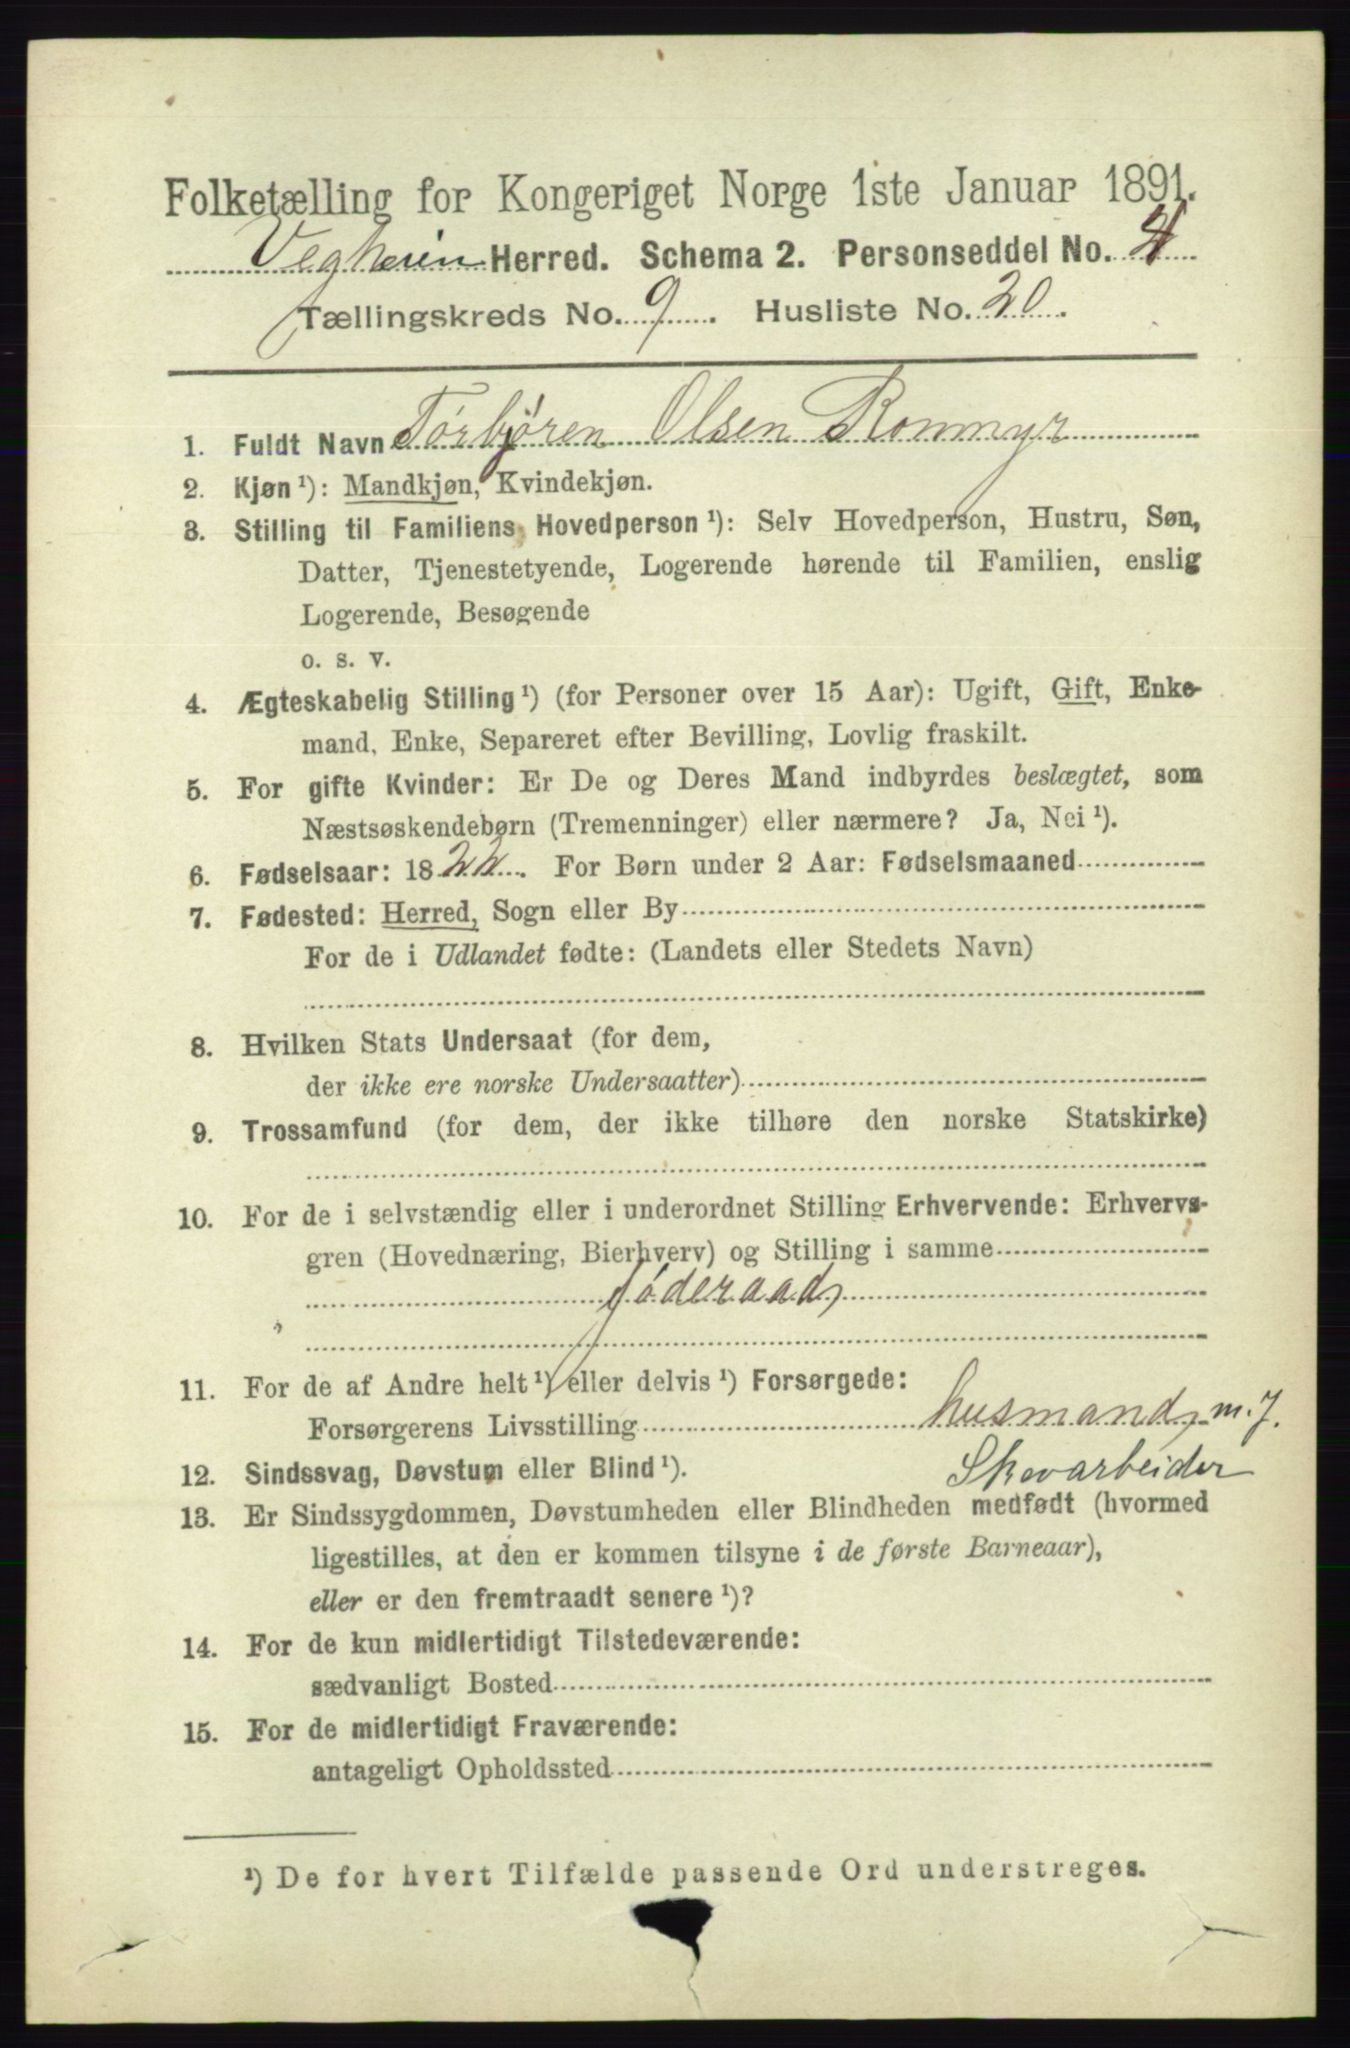 Folketælling for Kongeriget Norge 1ste Januar 1891.
Vegherien Herred. Schema 2. Personseddel No. 4
Tællingskreds No. 9. Husliste No. 20.
1. Fuldt Navn Torbjøren Olsen Ronmyr
2. Kjøn ¹): Mandkjøn, Kvindekjøn.
3. Stilling til Familiens Hovedperson ¹): Selv Hovedperson, Hustru, Søn,
Datter, Tjenestetyende, Logerende hørende til Familien, enslig
Logerende, Besøgende
o. s. v.
4. Ægteskabelig Stilling ¹) (for Personer over 15 Aar): Ugift, Gift, Enke-
mand, Enke, Separeret efter Bevilling, Lovlig fraskilt.
5. For gifte Kvinder: Er De og Deres Mand indbyrdes beslægtet, som
Næstsøskendebørn (Tremenninger) eller nærmere? Ja, Nei ¹).
6. Fødselsaar: 1822. For Børn under 2 Aar: Fødselsmaaned
7. Fødested: Herred, Sogn eller By
For de i Udlandet fødte: (Landets eller Stedets Navn)
8. Hvilken Stats Undersaat (for dem,
der ikke ere norske Undersaatter)
9. Trossamfund (for dem, der ikke tilhøre den norske Statskirke)
10. For de i selvstændig eller i underordnet Stilling Erhvervende: Erhvervs-
gren (Hovednæring, Bierhverv) og Stilling i samme
føderaad
11. For de af Andre helt ¹) eller delvis ¹) Forsørgede:
Forsørgerens Livsstilling husmand m. J.
Skovarbeider
12. Sindssvag, Døvstum eller Blind ¹).
13. Er Sindssygdommen, Døvstumheden eller Blindheden medfødt (hvormed
ligestilles, at den er kommen tilsyne i de første Barneaar),
eller er den fremtraadt senere ¹)?
14. For de kun midlertidigt Tilstedeværende:
sædvanligt Bosted
15. For de midlertidigt Fraværende:
antageligt Opholdssted
¹) De for hvert Tilfælde passende Ord understreges.